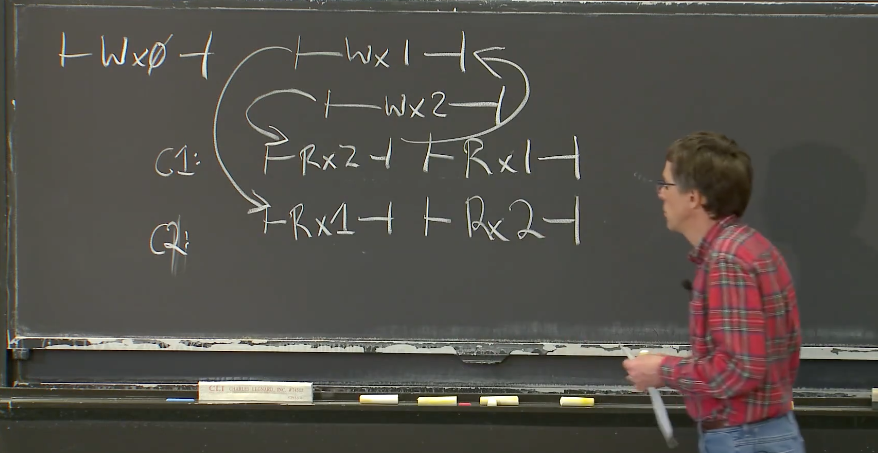 ⊢Wx0⊣ ⊢Wx1⊣
⊢Wx2⊣
C1: ⊢Rx2⊣ ⊢Rx1⊣
C2: ⊢Rx1⊣ ⊢Rx2⊣